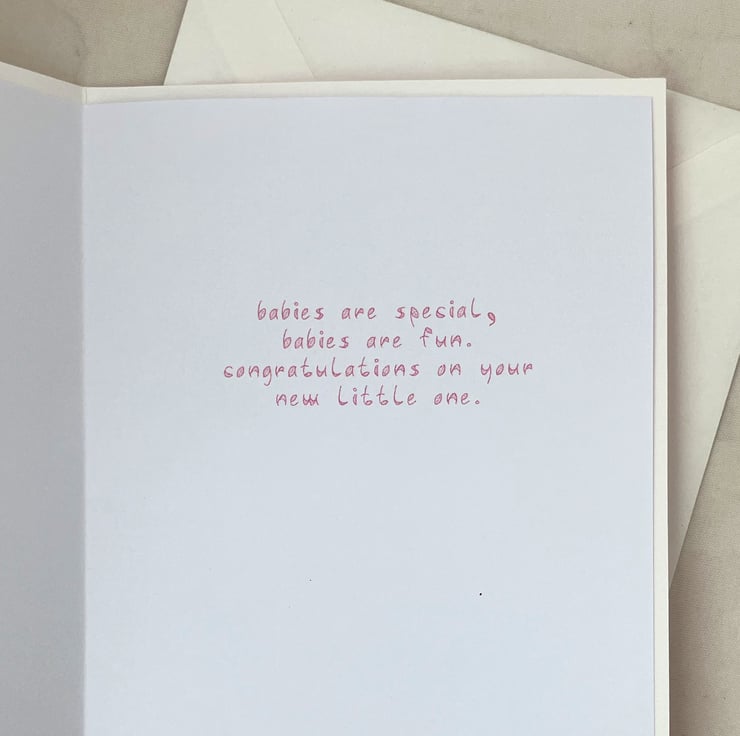 babies are special,
babies are fun.
congratulations on your
new little one.